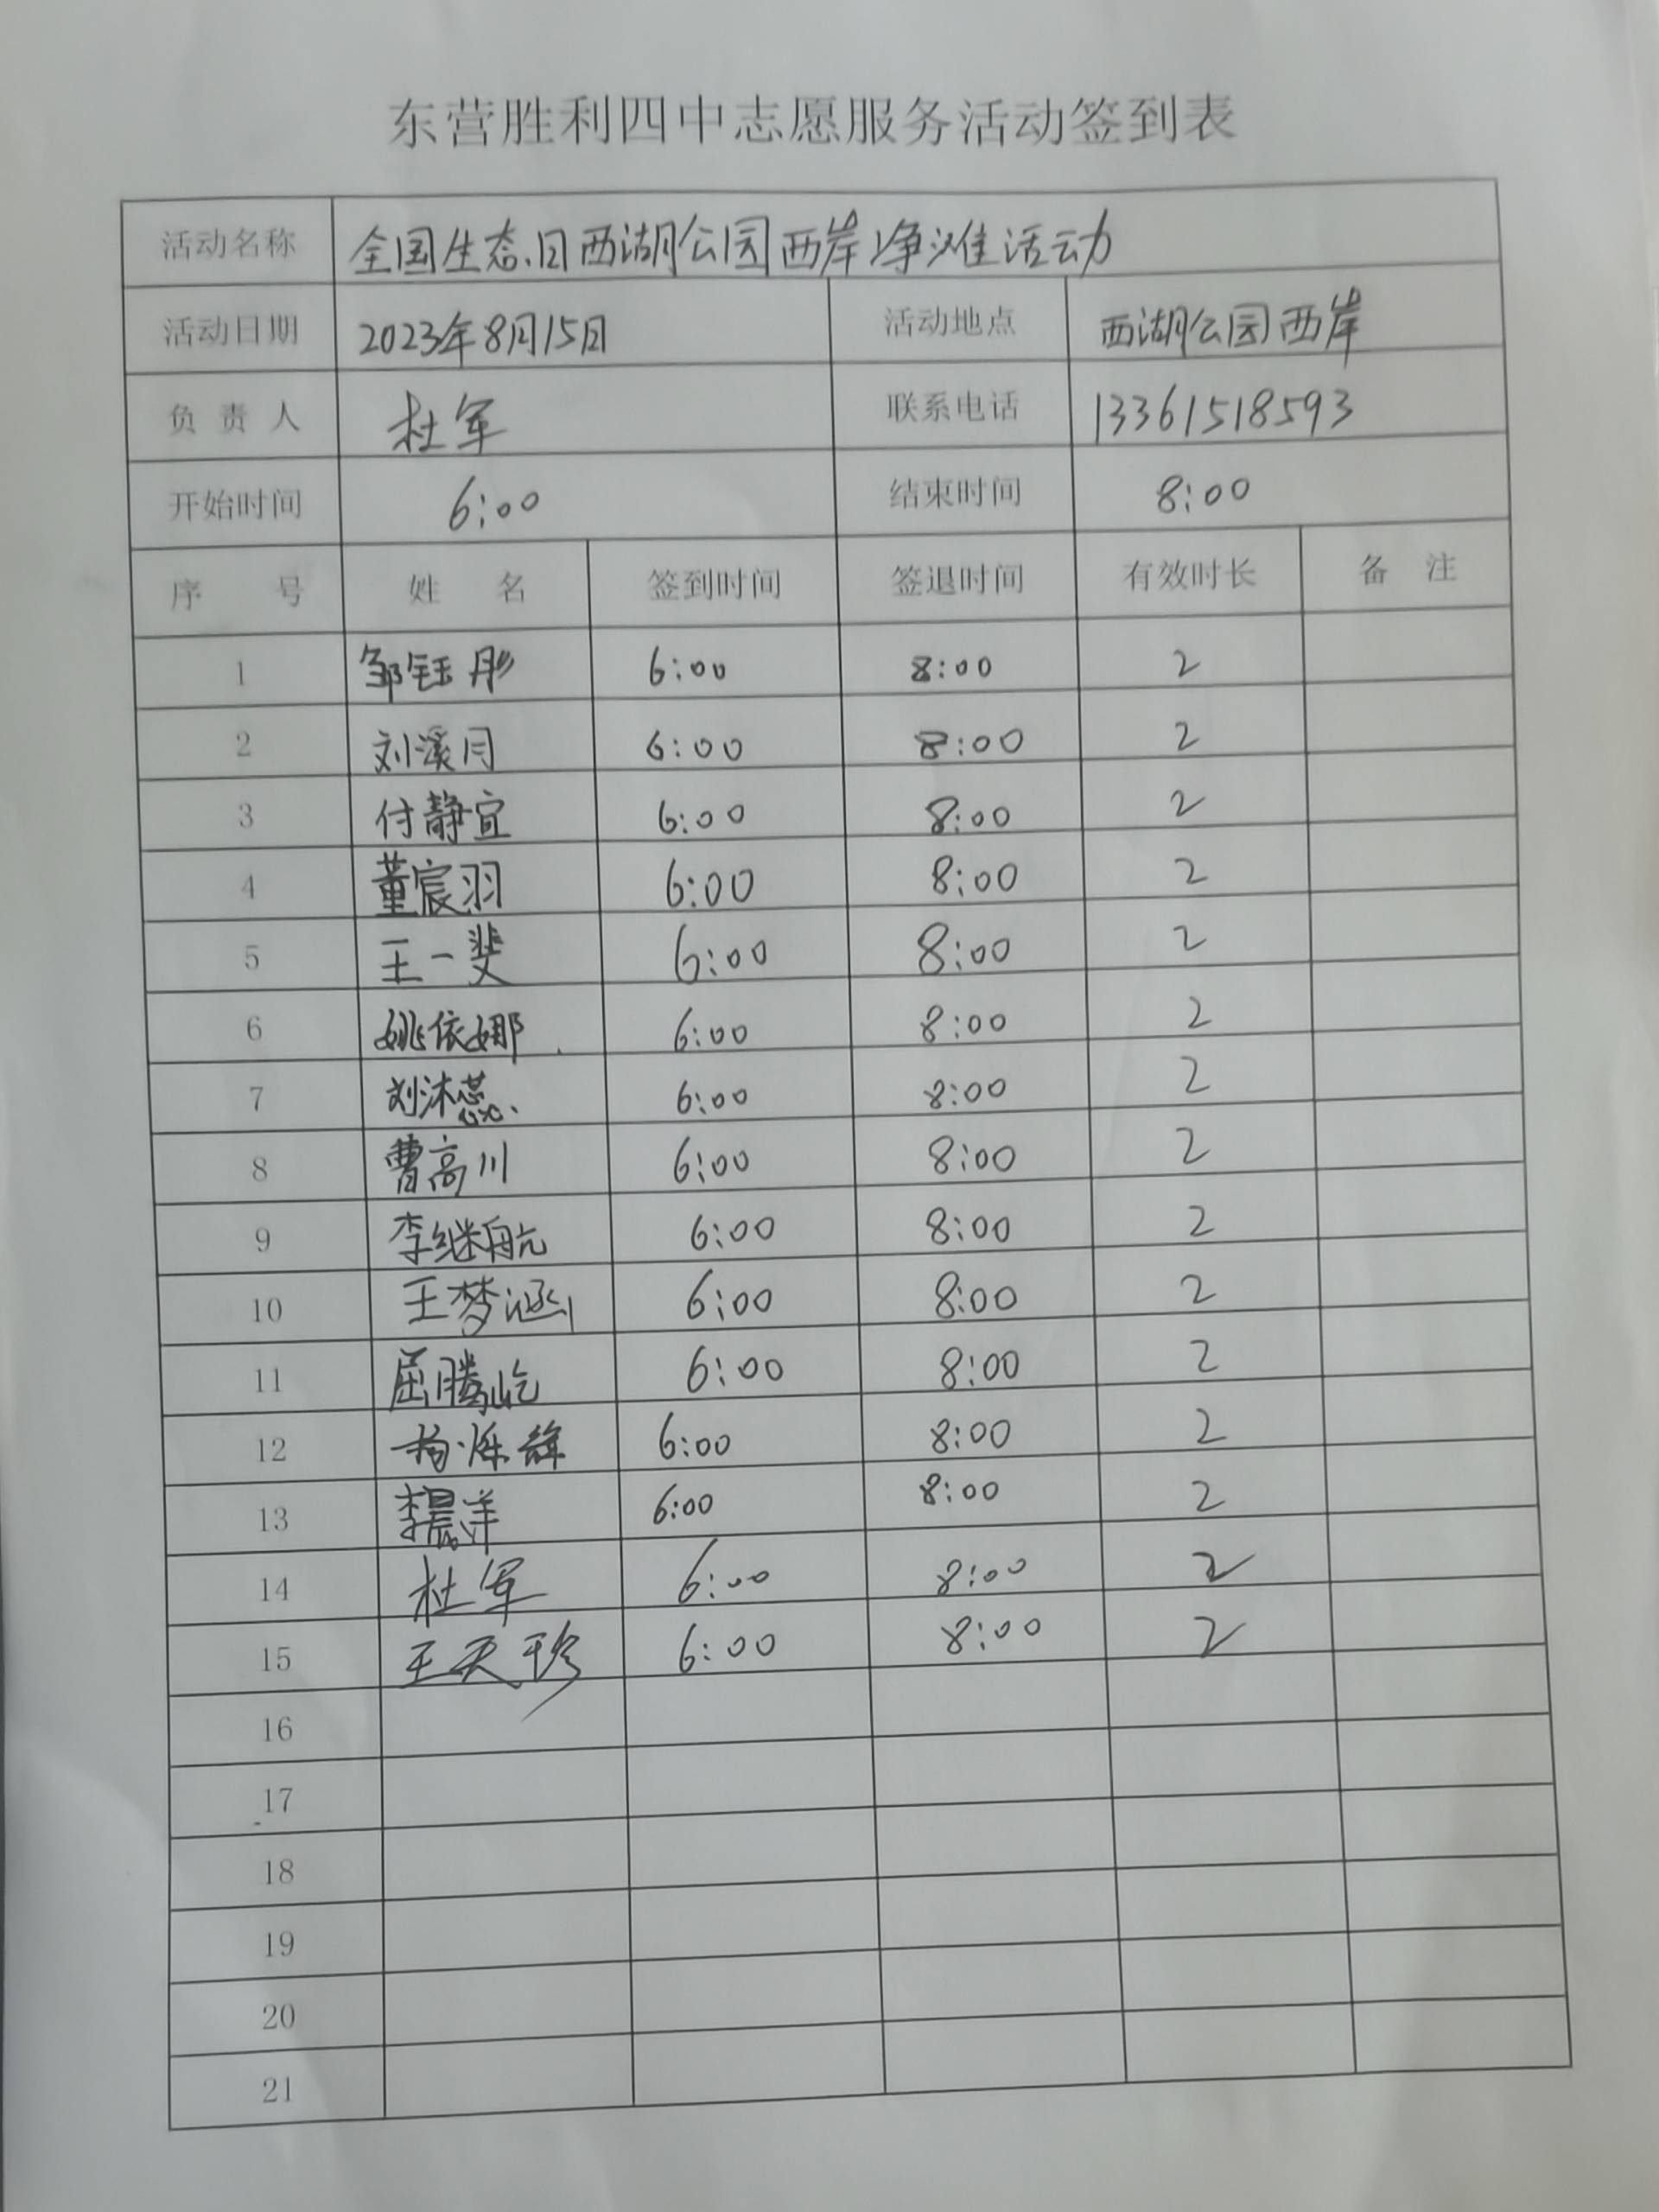 东营胜利四中志愿服务活动签到表
活动名称 全国生态日西湖公园西岸净滩活动
活动日期 2023年8月15日 活动地点 西湖公园西岸
负责人 杜军 联系电话 13361518593
开始时间 6:00 结束时间 8:00
序号 姓名 签到时间 签退时间 有效时长 备注
1 邹钰彤 6:00 8:00 2
2 刘溪月 6:00 8:00 2
3 付静宜 6:00 8:00 2
4 董宸羽 6:00 8:00 2
5 王一斐 6:00 8:00 2
6 姚依娜 6:00 8:00 2
7 刘沐蕊 6:00 8:00 2
8 曹高川 6:00 8:00 2
9 李继航 6:00 8:00 2
10 王梦涵 6:00 8:00 2
11 屈腾屹 6:00 8:00 2
12 6:00 8:00 2
13 李晨洋 6:00 8:00 2
14 杜军 6:00 8:00 2
15 王天珍 6:00 8:00 2
16
17
18
19
20
21